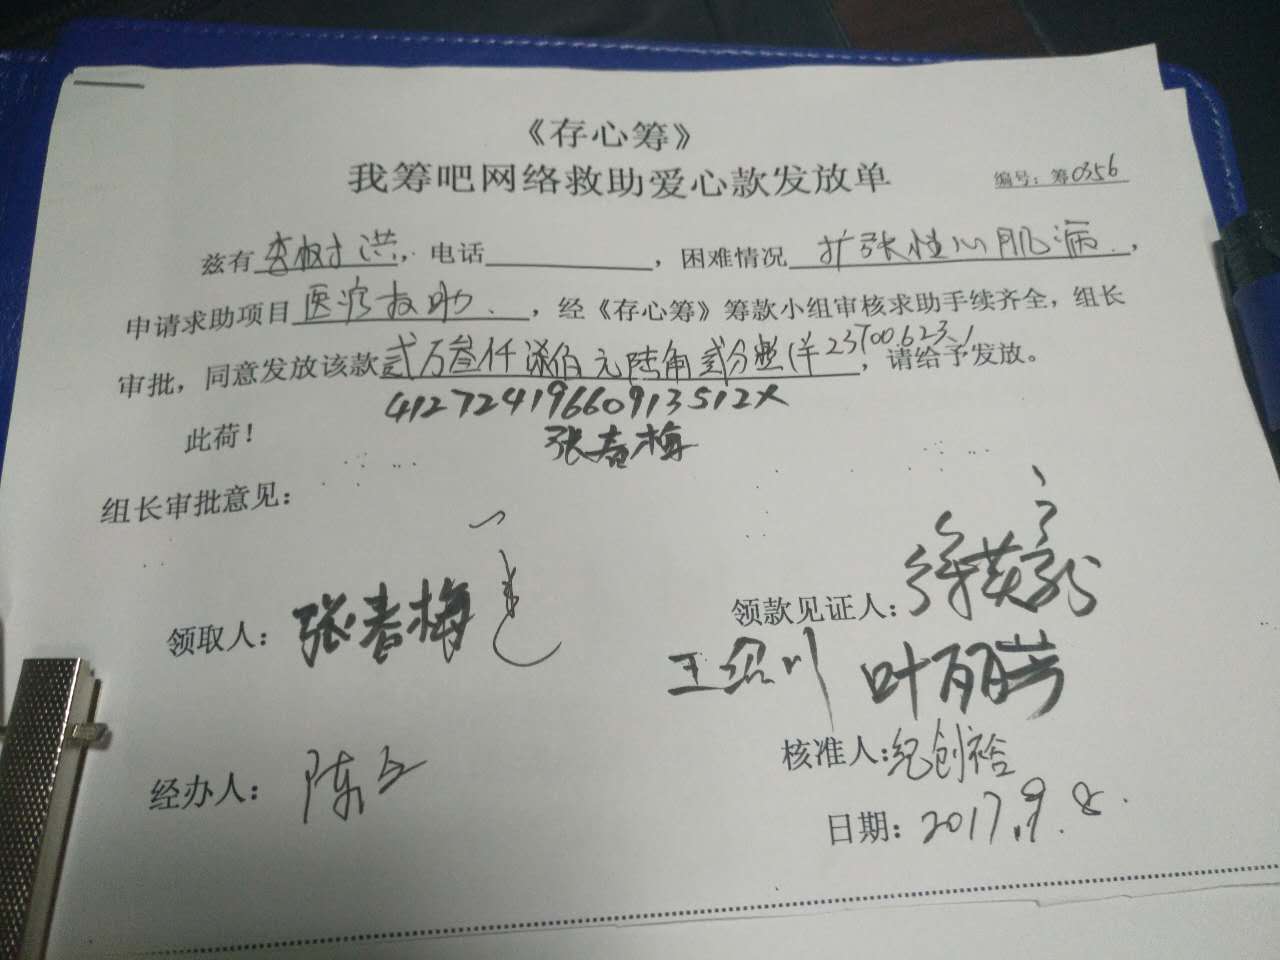 《存心筹》
我筹吧网络救助爱心款发放单
编号：筹0356
兹有李树洪，电话，困难情况扩张性心肌病，
申请求助项目医疗救助，经《存心筹》筹款小组审核求助手续齐全，组长
审批，同意发放该款贰万叁仟柒佰元陆角贰分整(¥23700.62元)，请给予发放。
41272419660913512X
此荷！
张春梅
组长审批意见：
领取人：张春梅
领款见证人：
王绍川 叶丽芸
核准人：纪创裕
经办人：陈
日期：2017.9.8.